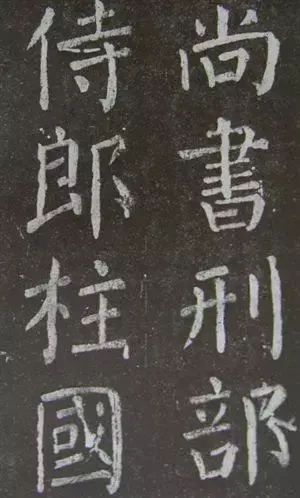 尚書刑部
侍郎柱國